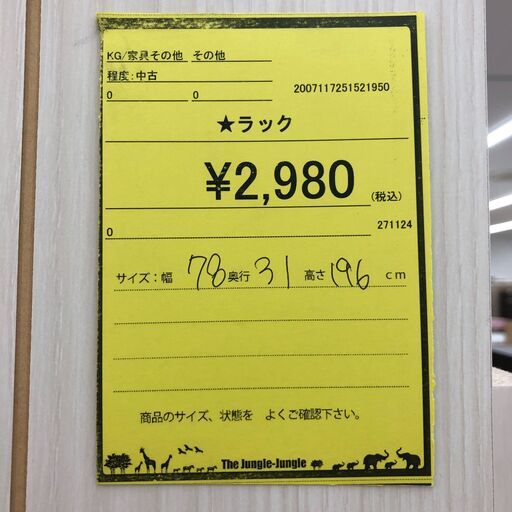 KG/家具その他 その他
程度:中古
0 0 2007117251521950
★ラック
¥2,980 (税込)
0 271124
サイズ:幅 78 奥行 31 高さ 196 cm
商品のサイズ、状態を よくご確認下さい。
The Jungle-Jungle